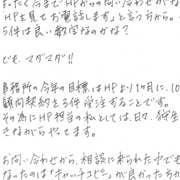 まったく今までHPからの問い合わせがな
「HPを見てお電話します」と言う方から。
5件は良い数字なのかな?
でも、マダマダ!!
事務所の今年の目標はHPより1ヶ月に、10
顧問契約を3件受注することです。
その為にHP担当の私としては、日々、狩生
きながらやってます。
お問い合わせから、相談に来られた中でも
なったのは「キャッチコピーが良かった方か